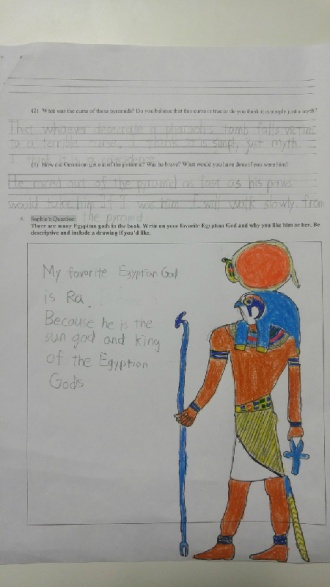 (2). What was the curse of these pyramids? Do you believe that this curse is true or do you think it is simply just a myth?
That whoever desecrate a pharaohs tomb falls victims
to a terrible curse. is simply just myth.
(3). How did get out of the pyramid? Was he brave? What would you have done if you were him?
He raced out of the pyramid as fast as his paws
would take him if I was him I will walk slowly from
the pyramid
4. Question
There are many Egyptian gods in the book. Write on your favorite Egyptian God and why you like him or her. Be
descriptive and include a drawing if you'd like.
My favorite Egyptian God
is Ra.
Because he is the
sun god and king
of the Egyptian
Gods